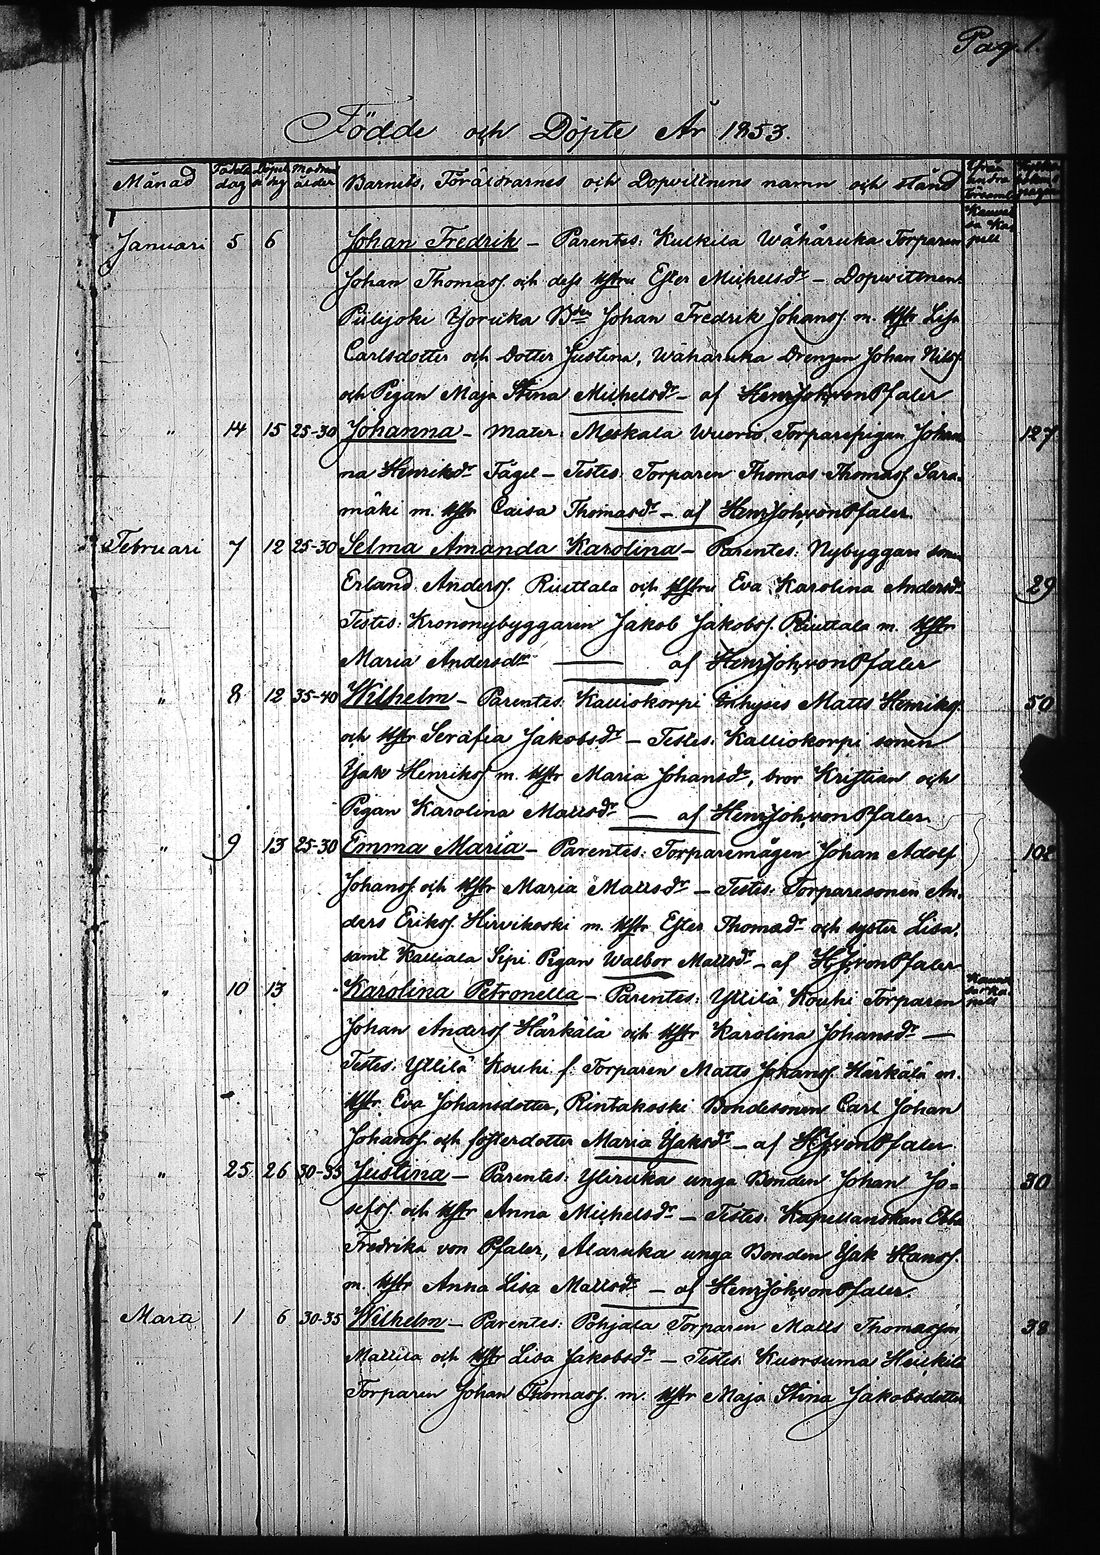 Pag. 1.
Födde och Döpte År 1853.
Månad Födelse dag Döpel dag Modrens ålder Barnets, Föräldrarnes och Dopvittnens namn och stånd
Januari 5 6 Johan Fredrik – Parentes: Kulkila Wähäruka Torparen
Johan Thomass. och dess hstru Ester Michelsdr – Dopvittnen:
Pulijoki Yoruka Bden Johan Fredrik Johanss. m. hstr Lisa
Carlsdotter och Dotter Justina, Wähäruka Drengen Johan Nilss.
och Pigan Maja Stina Michelsdr – af HenrJoh,vonPfaler
" 14 15 25-30 Johanna – Mater: Meskala Wuorio, Torparepigan Johan- 127
na Henriksdr Fägel – Testes: Torparen Thomas Thomass. Sara-
mäki m. hstr Caisa Thomasdr – af HenrJoh,vonPfaler.
Februari 7 12 25-30 Selma Amanda Karolina – Parentes: Nybyggare sonen
Erland Anderss. Riuttala och hstru Eva Karolina Andersdr 29
Testes: Krononybyggaren Jakob Jakobss. Riuttala m. hstr
Maria Andersdr — af HenrJoh,vonPfaler
" 8 12 35-40 Wilhelm – Parentes: Kalliokorpi Inhyses Matts Henrikss. 50
och hstr Serafia Jakobsdr – Testes: Kalliokorpi sonen
Isak Henrikss. m. hstr Maria Johansdr, bror Kristian och
Pigan Karolina Mattsdr — af HenrJoh,vonPfaler.
" 9 13 25-30 Emma Maria – Parentes: Torparemågen Johan Adolf 102
Johanss. och hstr Maria Mattsdr – Testes: Torparesonen An-
ders Erikss. Hirvikoski m. hstr Ester Thomasdr och syster Lisa,
samt Kalliala Sipi Pigan Walbor Mattsdr – af HJ,vonPfaler
" 10 13 Karolina Petronella – Parentes: Yllilä Kouhi Torparen
Johan Anderss. Härkälä och hstr Karolina Johansdr —
Testes: Yllilä Kouhi f. Torparen Matts Johanss. Härkälä m.
hstr Eva Johansdotter, Rintakoski Bondesonen Carl Johan
Johanss. och fosterdotter Maria Isaksdr – af HJ,vonPfaler
" 25 26 30-35 Justina – Parentes: Yliruka unga Bonden Johan Jo- 30
sefss. och hstr Anna Michelsdr – Testes: Kapellanskan Ebba
Fredrika von Pfaler, Alaruka unga Bonden Isak Hanss.
m. hstr Anna Lisa Mattsdr – af HenrJoh,vonPfaler
Marti 1 6 30-35 Wilhelm – Parentes: Pohjala Torparen Matts Thomasson 38
Mattila och hstr Lisa Jakobsdr – Testes: Kuorsuma Heikkilä
Torparen Johan Thomass. m. hstr Maja Stina Jakobsdotter